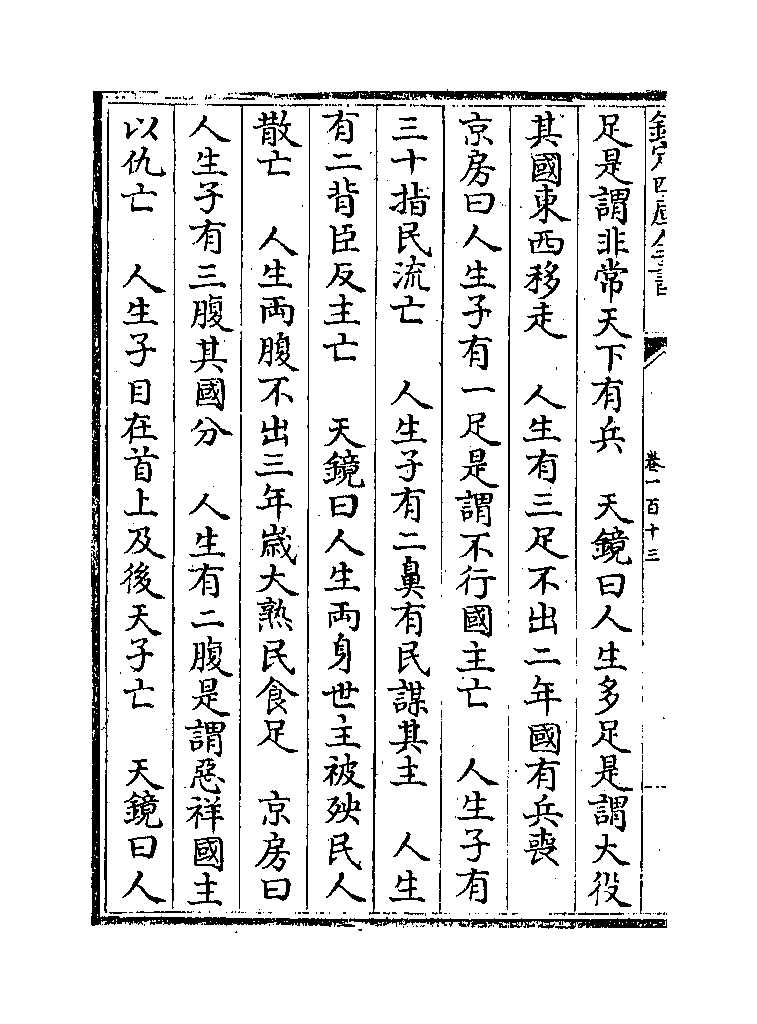 欽定四庫全書
卷一百十三
足是謂非常天下有兵　天鏡曰人生多足是謂大役
其國東西移走　人生有三足不出二年國有兵喪
京房曰人生子有一足是謂不行國主亡　人生子有
三十指民流亡　人生子有二鼻有民謀其主　人生
有二背臣反主亡　天鏡曰人生両身世主被殃民人
散亡　人生両腹不出三年嵗大熟民食足　京房曰
人生子有三腹其國分　人生有二腹是謂惡祥國主
以仇亡　人生子目在首上及後天子亡　天鏡曰人